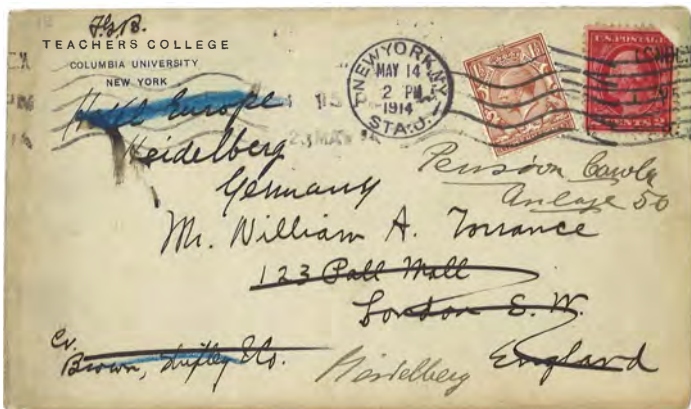 F.G.B.
TEACHERS COLLEGE
COLUMBIA UNIVERSITY
NEW YORK
NEW YORK, N.Y.
MAY 14
2 PM
1914
STA. J.
U.S. POSTAGE
CENTS 2
Hotel Europe
23 MAY 14
Heidelberg
Germany
Pension Carola
Anlage 50
Mr. William A. Torrance
123 Pall Mall
London S.W.
England
Brown, Shipley & Co.
Heidelberg